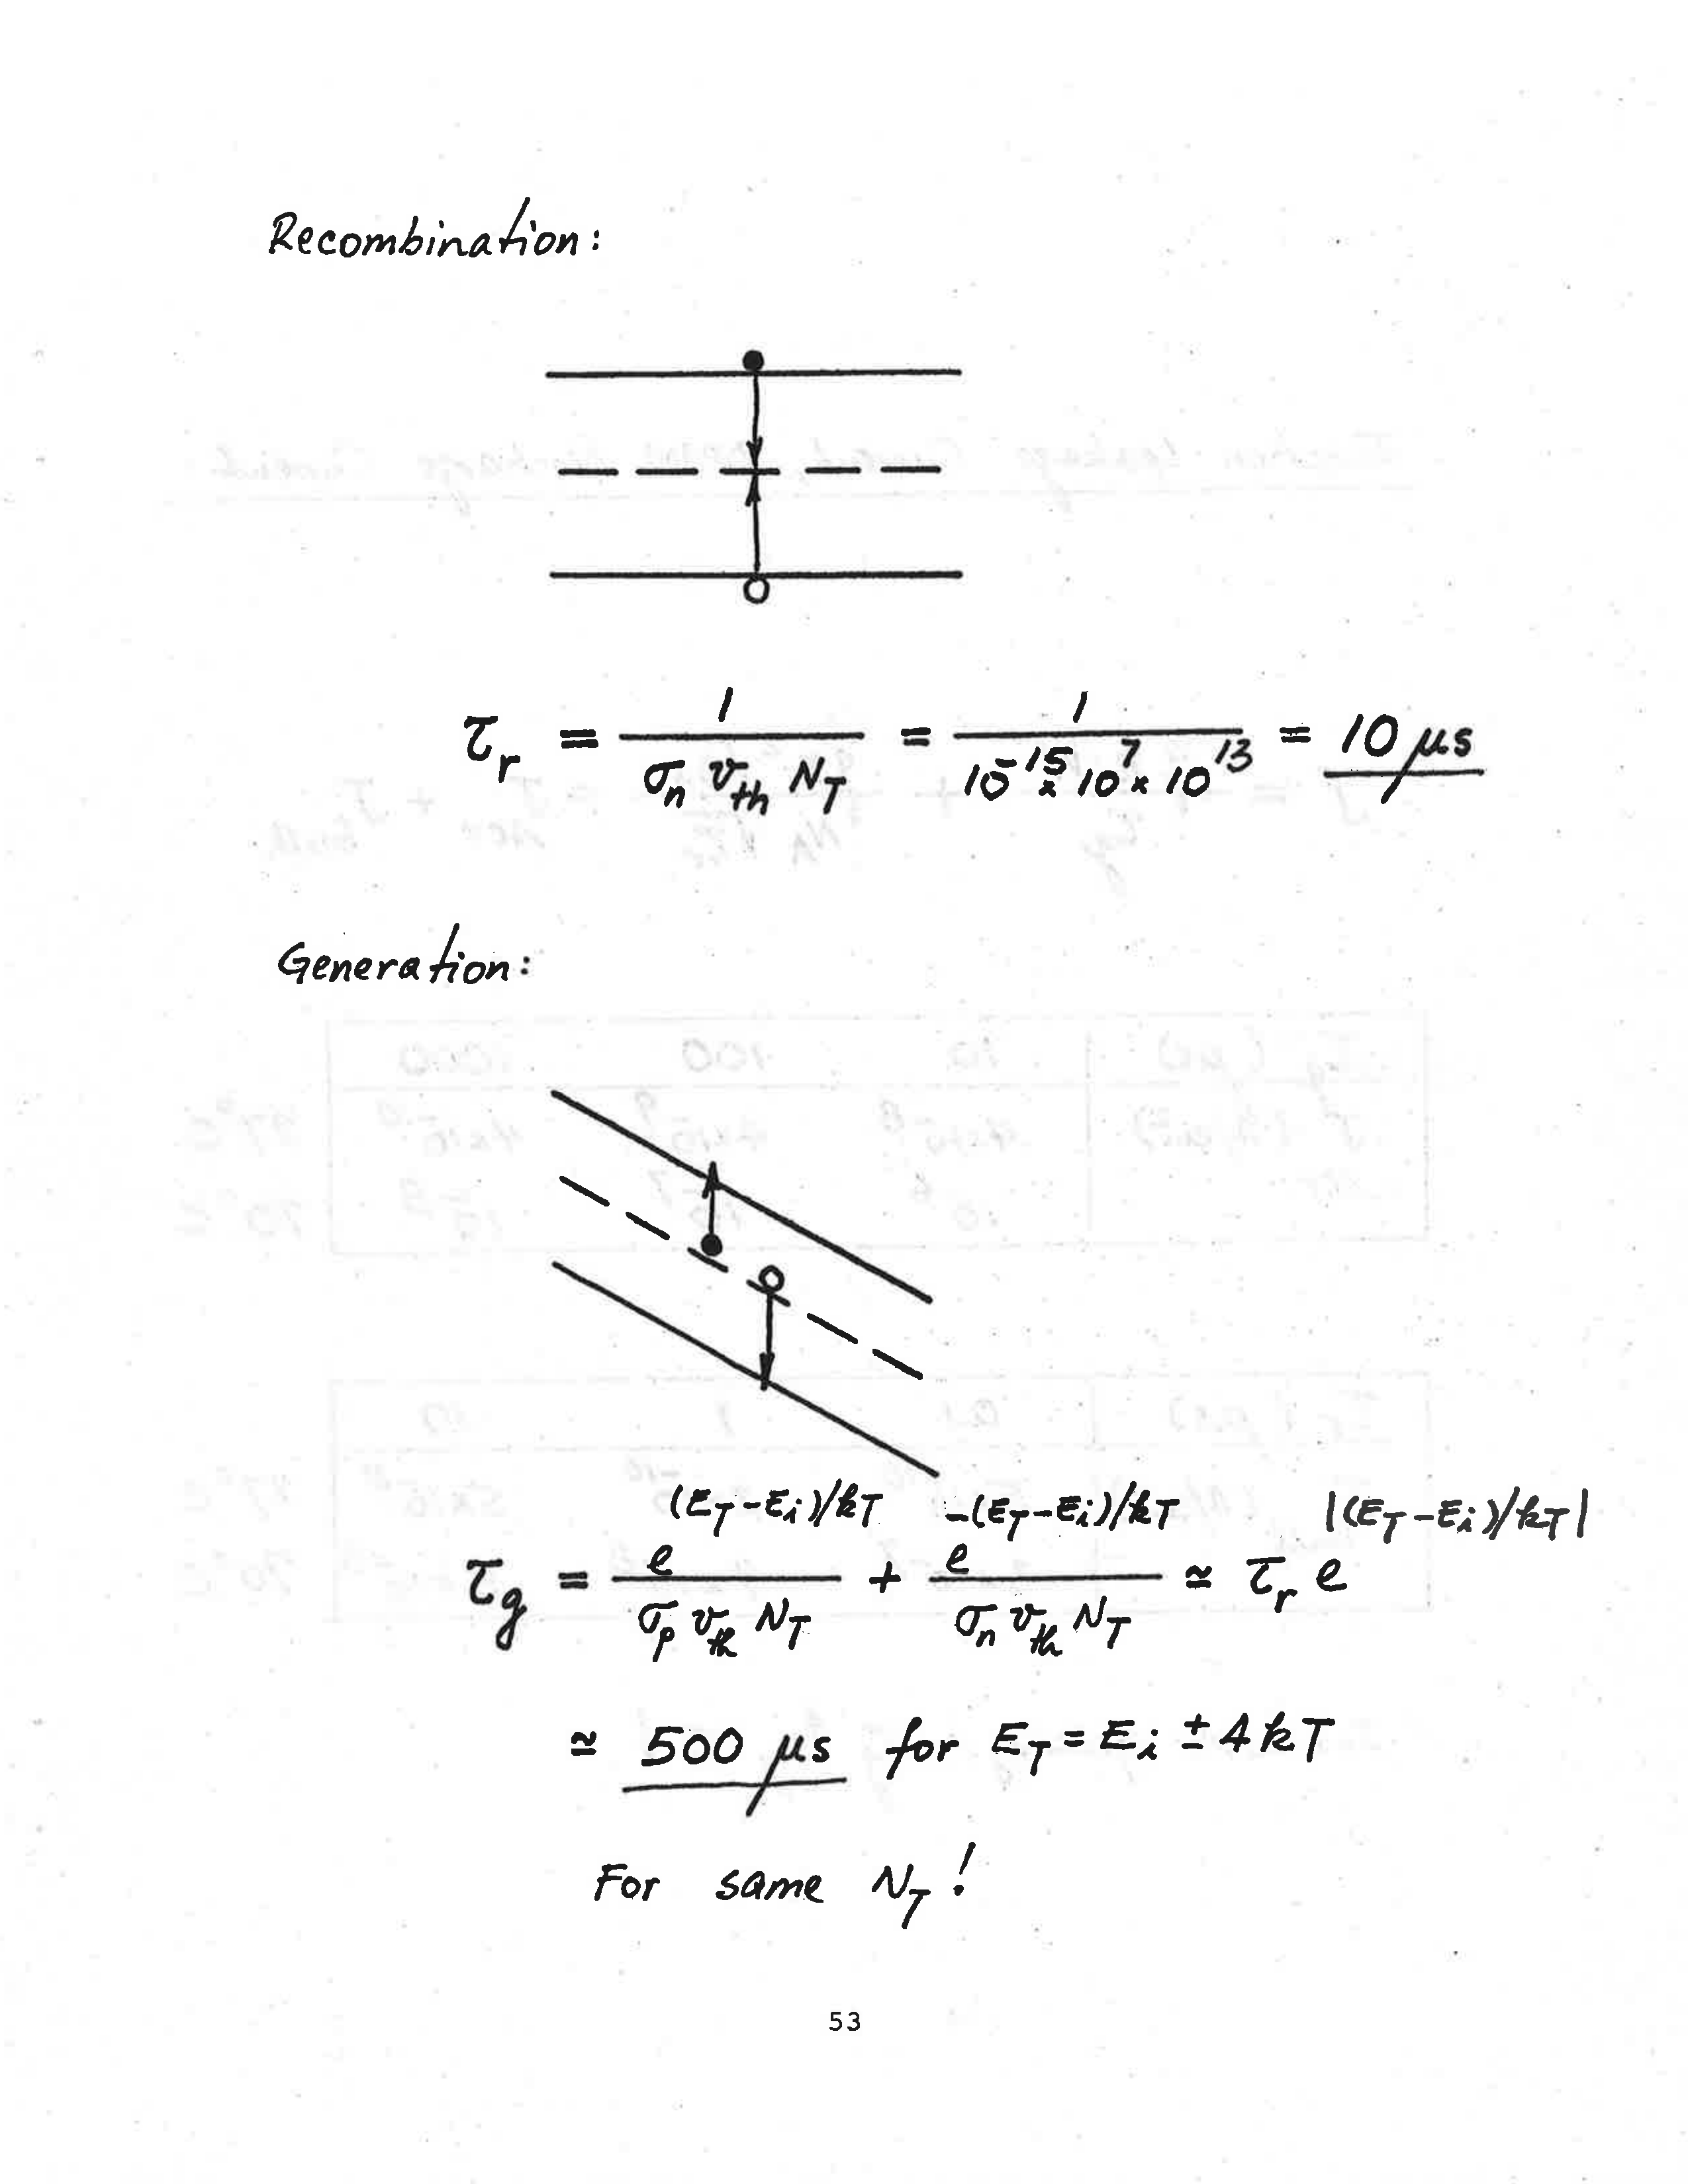 Recombination:
τr = 1 / σn vth NT = 1 / 10^-15 x 10^7 x 10^13 = 10 μs
Generation:
τg = e^(ET-Ei)/kT / σp vth NT + e^-(ET-Ei)/kT / σn vth NT ≃ τr e^|(ET-Ei)/kT|
≃ 500 μs for ET = Ei ± 4kT
For same NT!
53